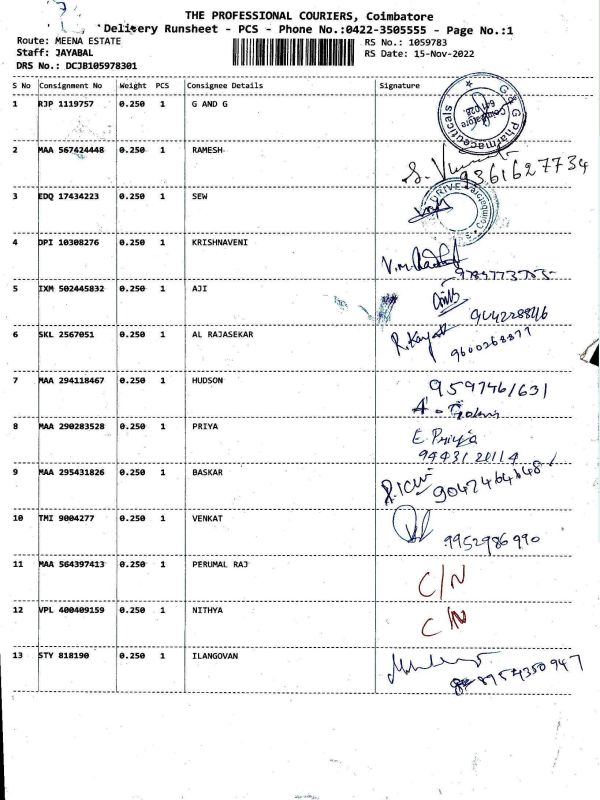 THE PROFESSIONAL COURIERS, Coimbatore
Delivery Runsheet - PCS - Phone No.:0422-3505555 - Page No.:1
Route: MEENA ESTATE
RS No.: 1059783
Staff: JAYABAL
RS Date: 15-Nov-2022
DRS No.: DCJB105978301
S No Consignment No Weight PCS Consignee Details Signature
1 RJP 1119757 0.250 1 G AND G
G & G Pharmaceuticals
Coimbatore
641 028.
2 MAA 567424448 0.250 1 RAMESH
9361627734
3 EDQ 17434223 0.250 1 SEW
4 DPI 10308276 0.250 1 KRISHNAVENI
5 IXM 502445832 0.250 1 AJI
6 SKL 2567051 0.250 1 AL RAJASEKAR
9600268377
7 MAA 294118467 0.250 1 HUDSON
9597461631
8 MAA 290283528 0.250 1 PRIYA
E. Priya
9443120114
9 MAA 295431826 0.250 1 BASKAR
9042464648
10 TMI 9004277 0.250 1 VENKAT
9952986990
11 MAA 564397413 0.250 1 PERUMAL RAJ
C/N
12 VPL 400409159 0.250 1 NITHYA
C/N
13 STY 818190 0.250 1 ILANGOVAN
8954350947